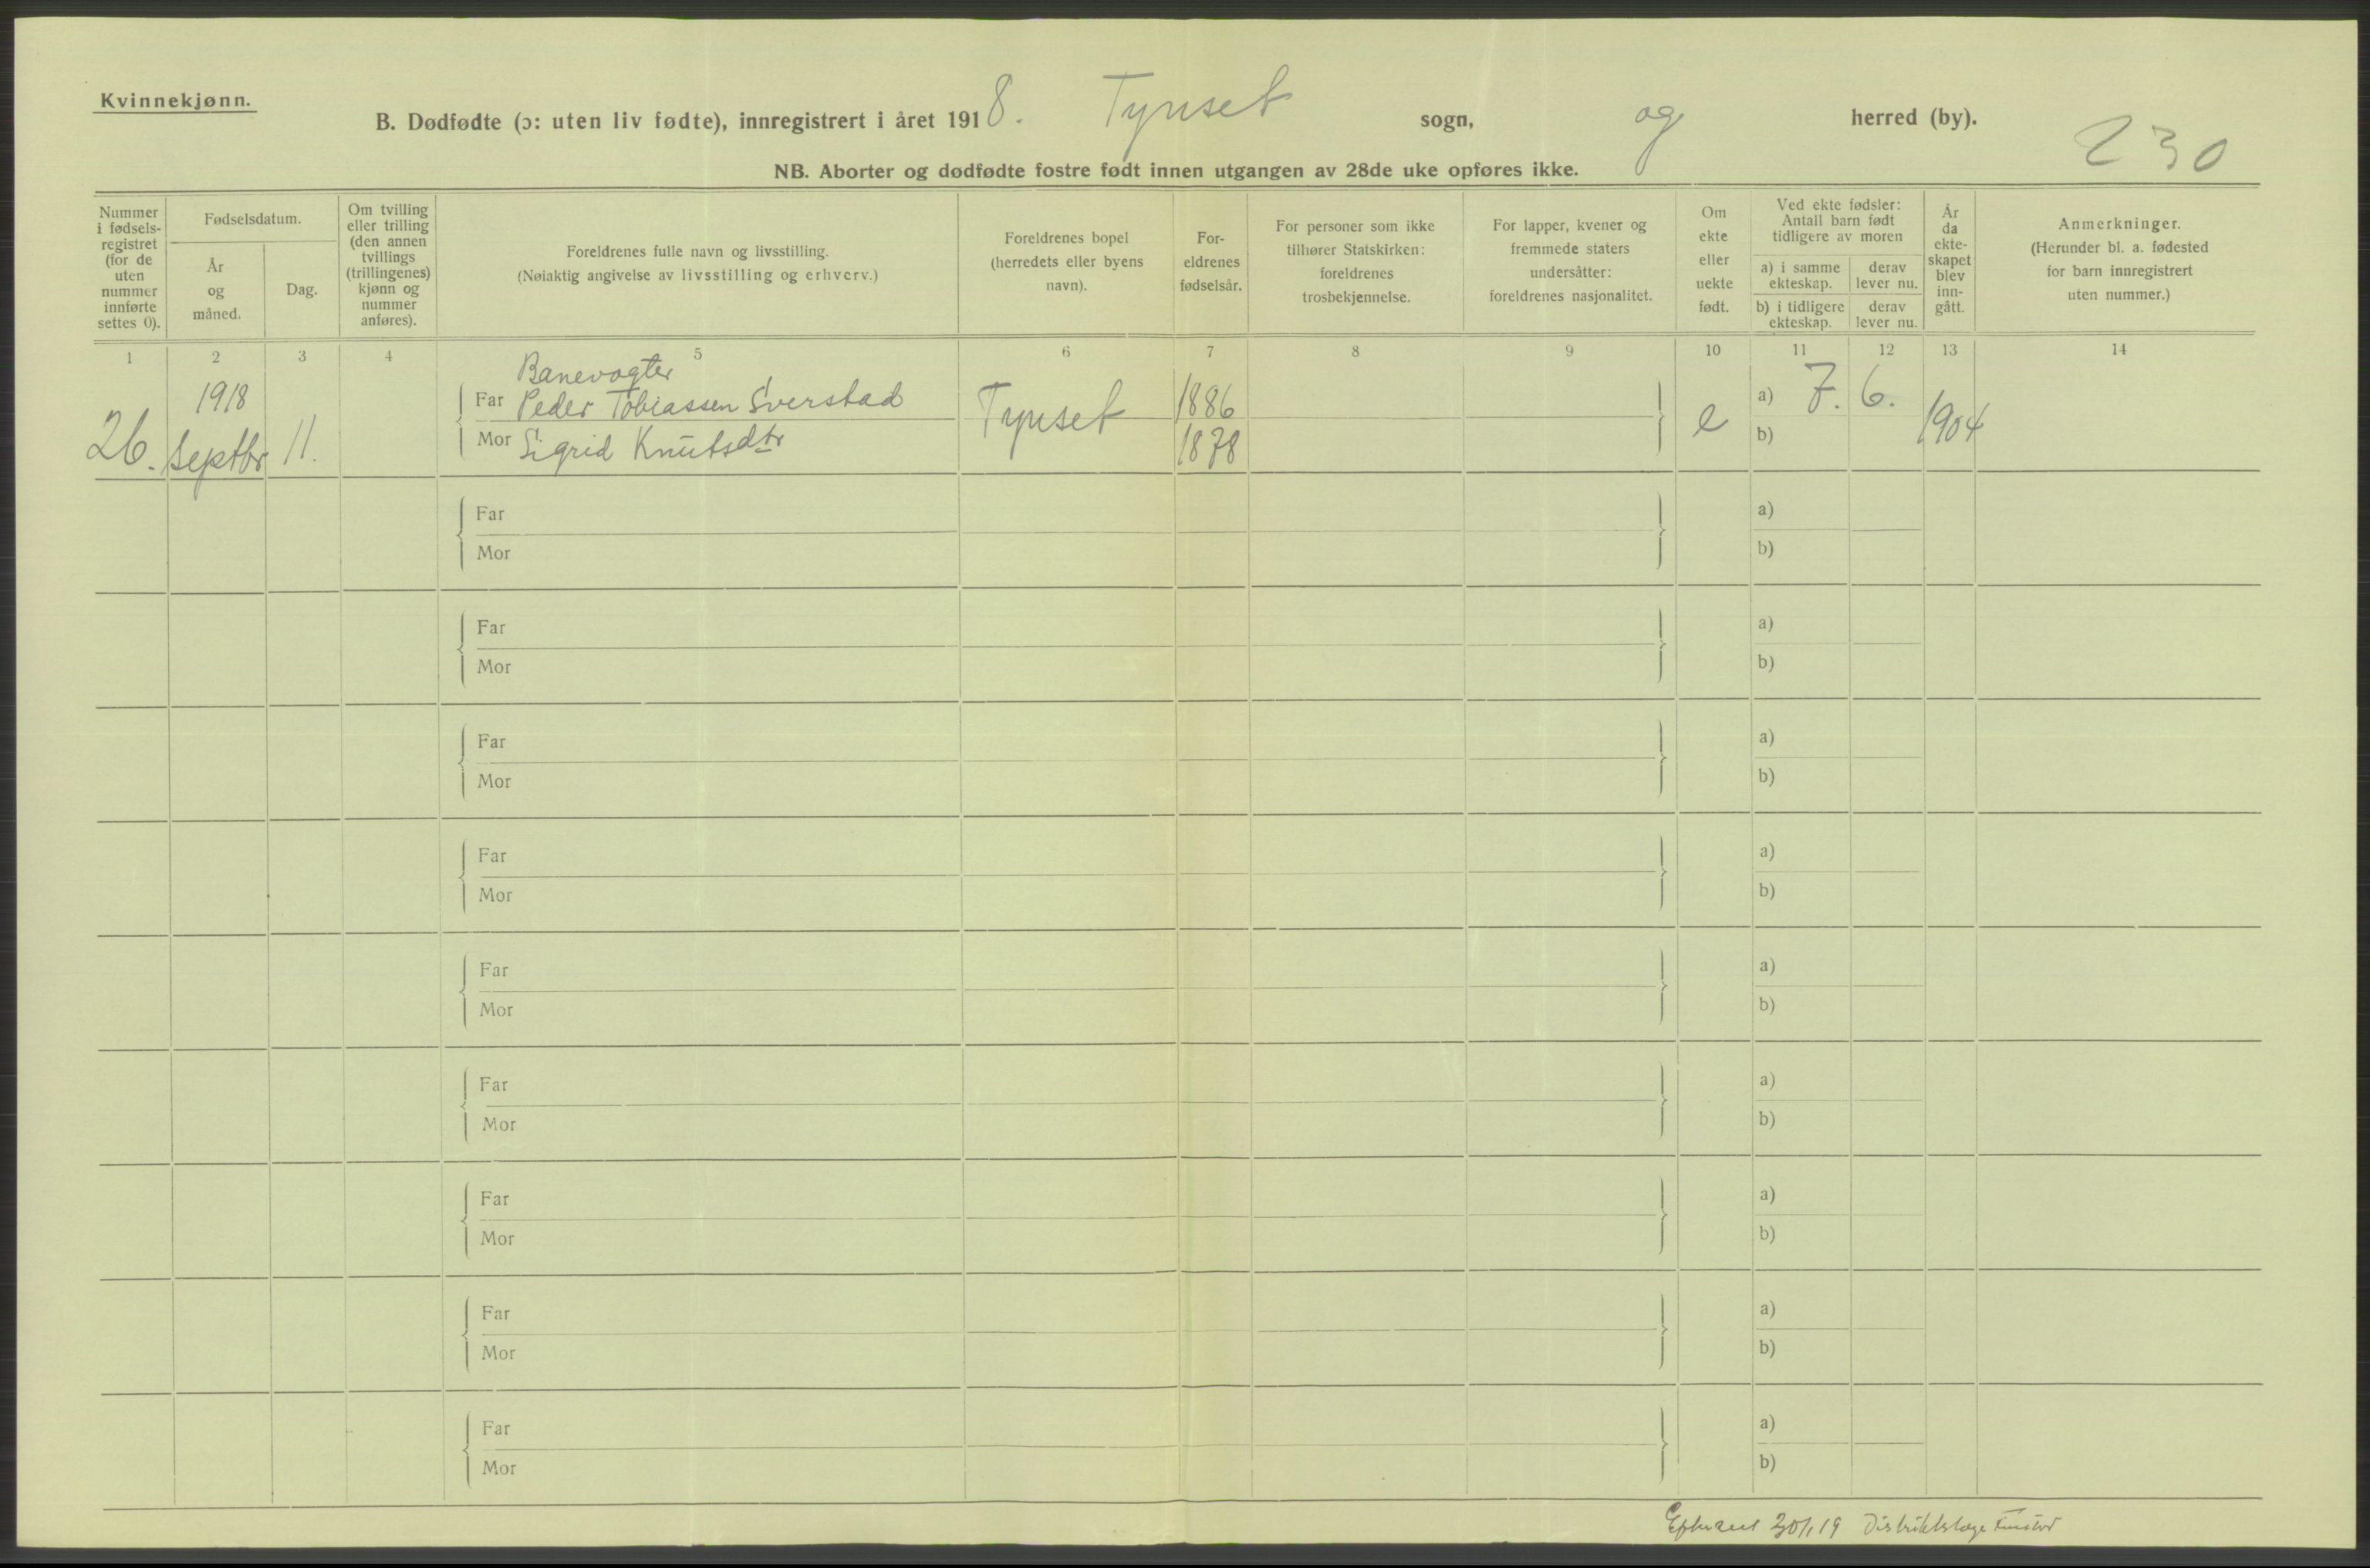 Kvinnekjønn.
B. Dødfødte (ɔ: uten liv fødte), innregistrert i året 1918. Tynset sogn, og herred (by).
230
NB. Aborter og dødfødte fostre født innen utgangen av 28de uke opføres ikke.
Nummer i fødsels-registret (for de uten nummer innførte settes 0).
Fødselsdatum.
År og måned.
Dag.
Om tvilling eller trilling (den annen tvillings (trillingenes) kjønn og nummer anføres).
Foreldrenes fulle navn og livsstilling.
(Nøiaktig angivelse av livsstilling og erhverv.)
Foreldrenes bopel (herredets eller byens navn).
For-eldrenes fødselsår.
For personer som ikke tilhører Statskirken: foreldrenes trosbekjennelse.
For lapper, kvener og fremmede staters undersåtter: foreldrenes nasjonalitet.
Om ekte eller uekte født.
Ved ekte fødsler: Antall barn født tidligere av moren
a) i samme ekteskap.
derav lever nu.
b) i tidligere ekteskap.
derav lever nu.
År da ekte-skapet blev inn-gått.
Anmerkninger.
(Herunder bl. a. fødested for barn innregistrert uten nummer.)
1 2 3 4 5 6 7 8 9 10 11 12 13 14
Banevogter
1918 Far Peder Tobiassen Sverstad Tynset 1886 a) 7. 6.
26. Septbr 11. Mor Sigrid Knutsdtr 1878 e b) 1904
Far a)
Mor b)
Far a)
Mor b)
Far a)
Mor b)
Far a)
Mor b)
Far a)
Mor b)
Far a)
Mor b)
Far a)
Mor b)
Far a)
Mor b)
Far a)
Mor b)
30/1 19 Distriktslæge